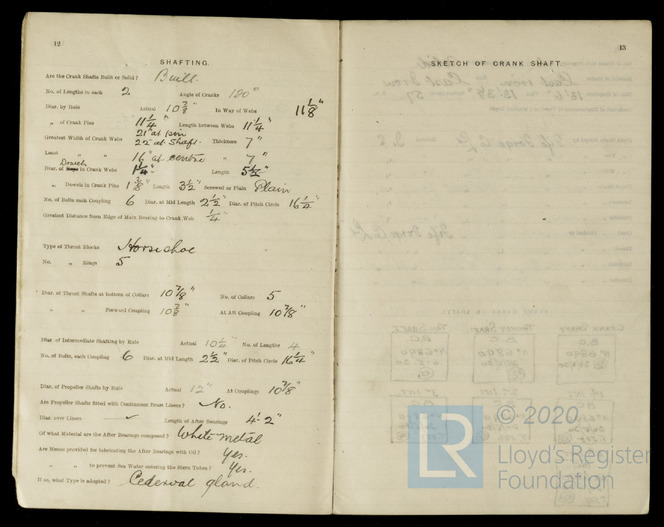 12
SHAFTING.
Are the Crank Shafts Built or Solid? Built
No. of Lengths in each 2 Angle of Cranks 120°
Diar. by Rule Actual 10 7/8" In Way of Webs 11 1/8"
„ of Crank Pins 11 1/4" Length between Webs 11 1/4"
Greatest Width of Crank Webs 21" at pin
22" at Shaft. Thickness 7"
Least „ „ 16" at centre „ 7"
Diar. of Dowels in Crank Webs 1 1/4" Length 5 1/2"
„ Dowels in Crank Pins 1 3/8" Length 3 1/2" Screwed or Plain Plain
No. of Bolts each Coupling 6 Diar. at Mid Length 2 1/2" Diar. of Pitch Circle 16 1/4"
Greatest Distance from Edge of Main Bearing to Crank Web 1/4"
Type of Thrust Blocks Horseshoe
No. „ Rings 5
Diar. of Thrust Shafts at bottom of Collars 10 7/8" No. of Collars 5
„ „ Forward Coupling 10 7/8" At Aft Coupling 10 7/8"
Diar. of Intermediate Shafting by Rule Actual 10 1/4" No. of Lengths 4
No. of Bolts, each Coupling 6 Diar. at Mid Length 2 1/2" Diar. of Pitch Circle 16 1/4"
Diar. of Propeller Shafts by Rule Actual 12" At Couplings 10 7/8"
Are Propeller Shafts fitted with Continuous Brass Liners? No.
Diar. over Liners Length of After Bearings 4'-2"
Of what Material are the After Bearings composed? White metal
Are Means provided for lubricating the After Bearings with Oil? Yes.
„ „ to prevent Sea Water entering the Stern Tubes? Yes.
If so, what Type is adopted? Cederval gland.
13
SKETCH OF CRANK SHAFT
LR
© 2020
Lloyd's Register
Foundation